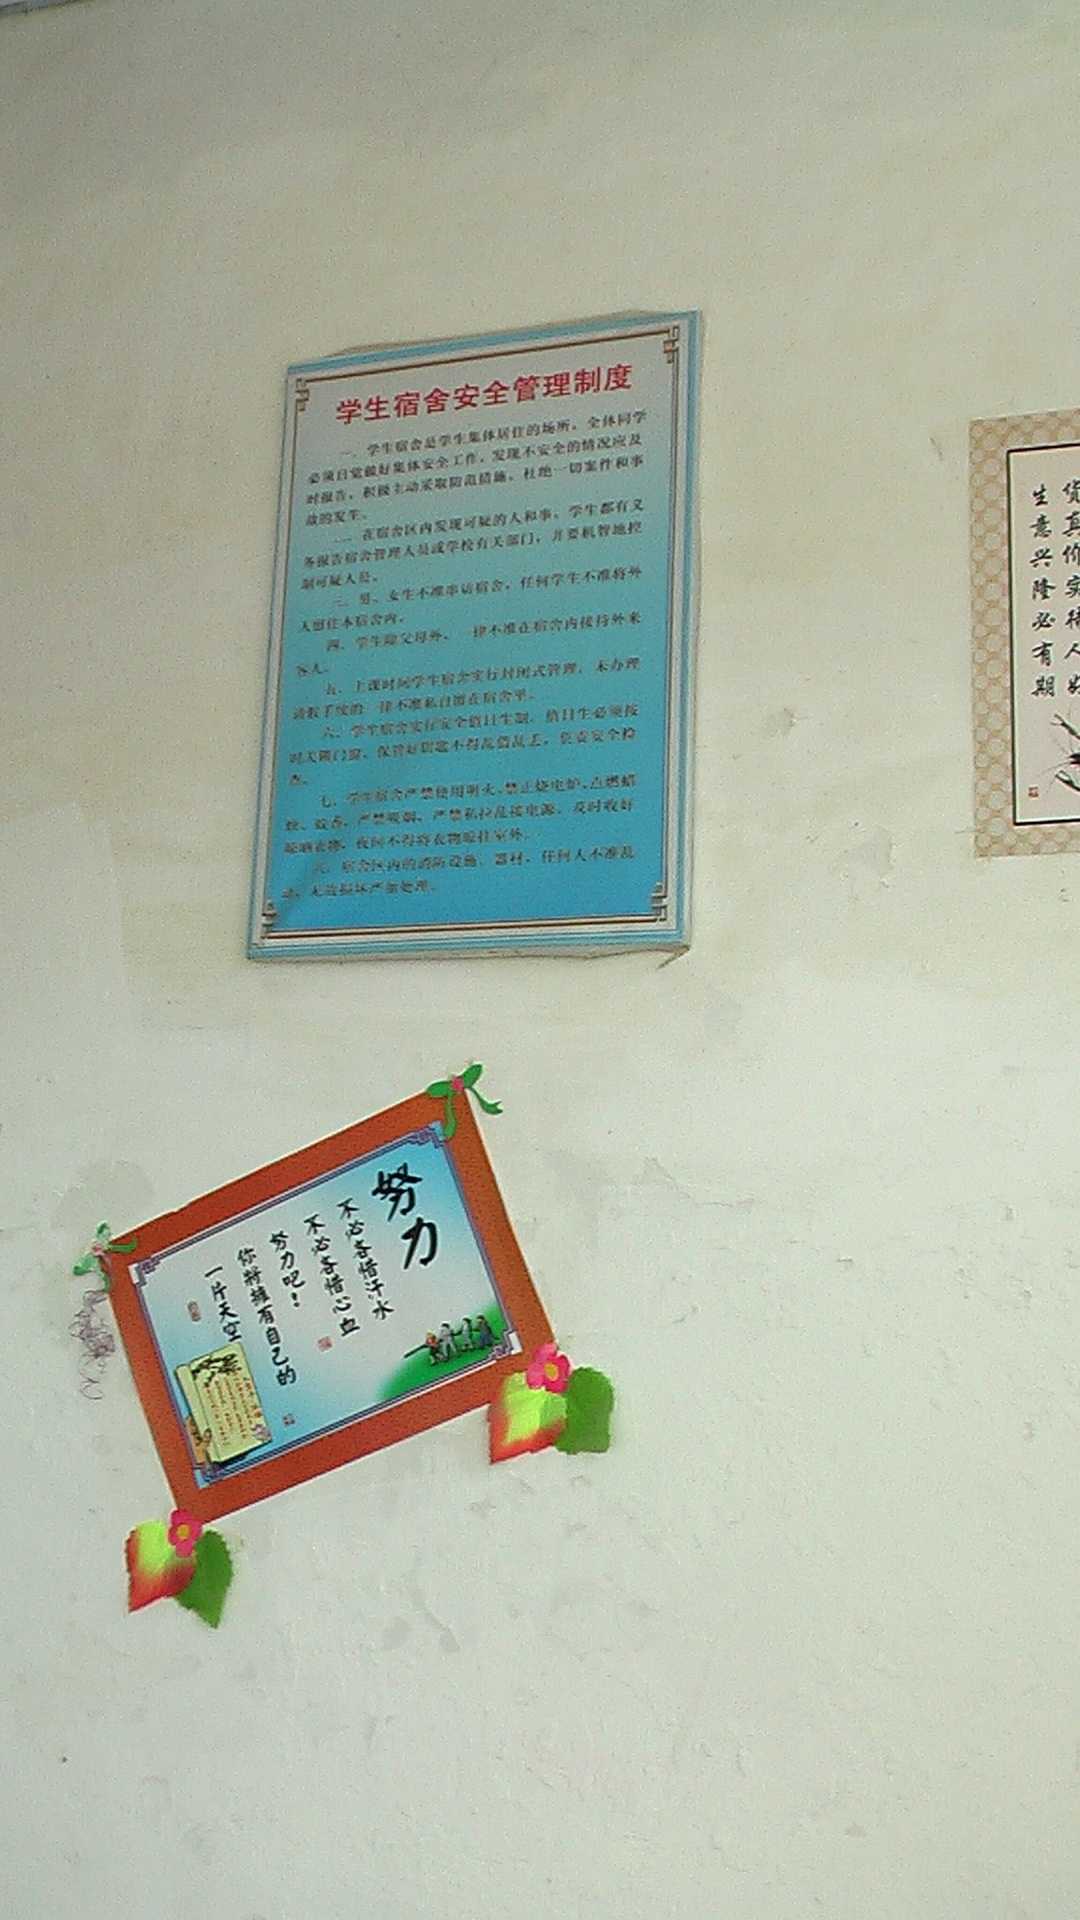 学生宿舍安全管理制度
一、学生宿舍是学生集体居住的场所。全体同学
必须自觉做好集体安全工作，发现不安全的情况应及
时报告，积极主动采取防范措施。杜绝一切案件和事
故的发生。
二、在宿舍区内发现可疑的人和事，学生都有义
务报告宿舍管理人员或学校有关部门，并要机智地控
制可疑人员。
三、男、女生不准串访宿舍，任何学生不准将外
人留住本宿舍内。
四、学生除父母外，一律不准在宿舍内接待外来
客人。
五、上课时间学生宿舍实行封闭式管理，未办理
请假手续的一律不准私自留在宿舍里。
六、学生宿舍实行安全值日生制，值日生必须按
时关锁门窗，保管好钥匙不得乱借乱丢，负责安全检
查。
七、学生宿舍严禁使用明火，禁止烧电炉、点燃蜡
烛、蚊香，严禁吸烟，严禁私拉乱接电源，及时收好
晾晒衣物，夜间不得将衣物晾挂室外。
八、宿舍区内的消防设施、器材，任何人不准乱
动，无故损坏严加处理。
货真价实待人
生意兴隆必有期
努力
不必吝惜汗水
不必吝惜心血
努力吧！
你将拥有自己的
一片天空